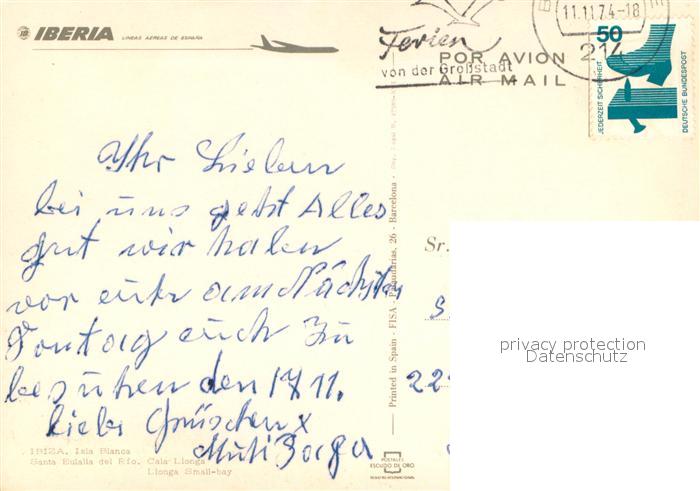 IBERIA LINEAS AEREAS DE ESPAÑA
11.11.74-18
214
Ferien
von der Großstadt
POR AVION
AIR MAIL
50
JEDERZEIT SICHERHEIT
DEUTSCHE BUNDESPOST
Ihr Lieben
bei uns geht Alles
gut wir haben
vor euch am Nächsten
Sontag euch zu
besuhen den 17 11.
liebe Grüschen x
Muti
Sr.
22
Printed in Spain - FISA - Palaudarias, 26 - Barcelona
privacy protection
Datenschutz
IBIZA. Isla Blanca
Santa Eulalia del Río. Cala Llonga
Llonga Small-bay
POSTALES
ESCUDO DE ORO